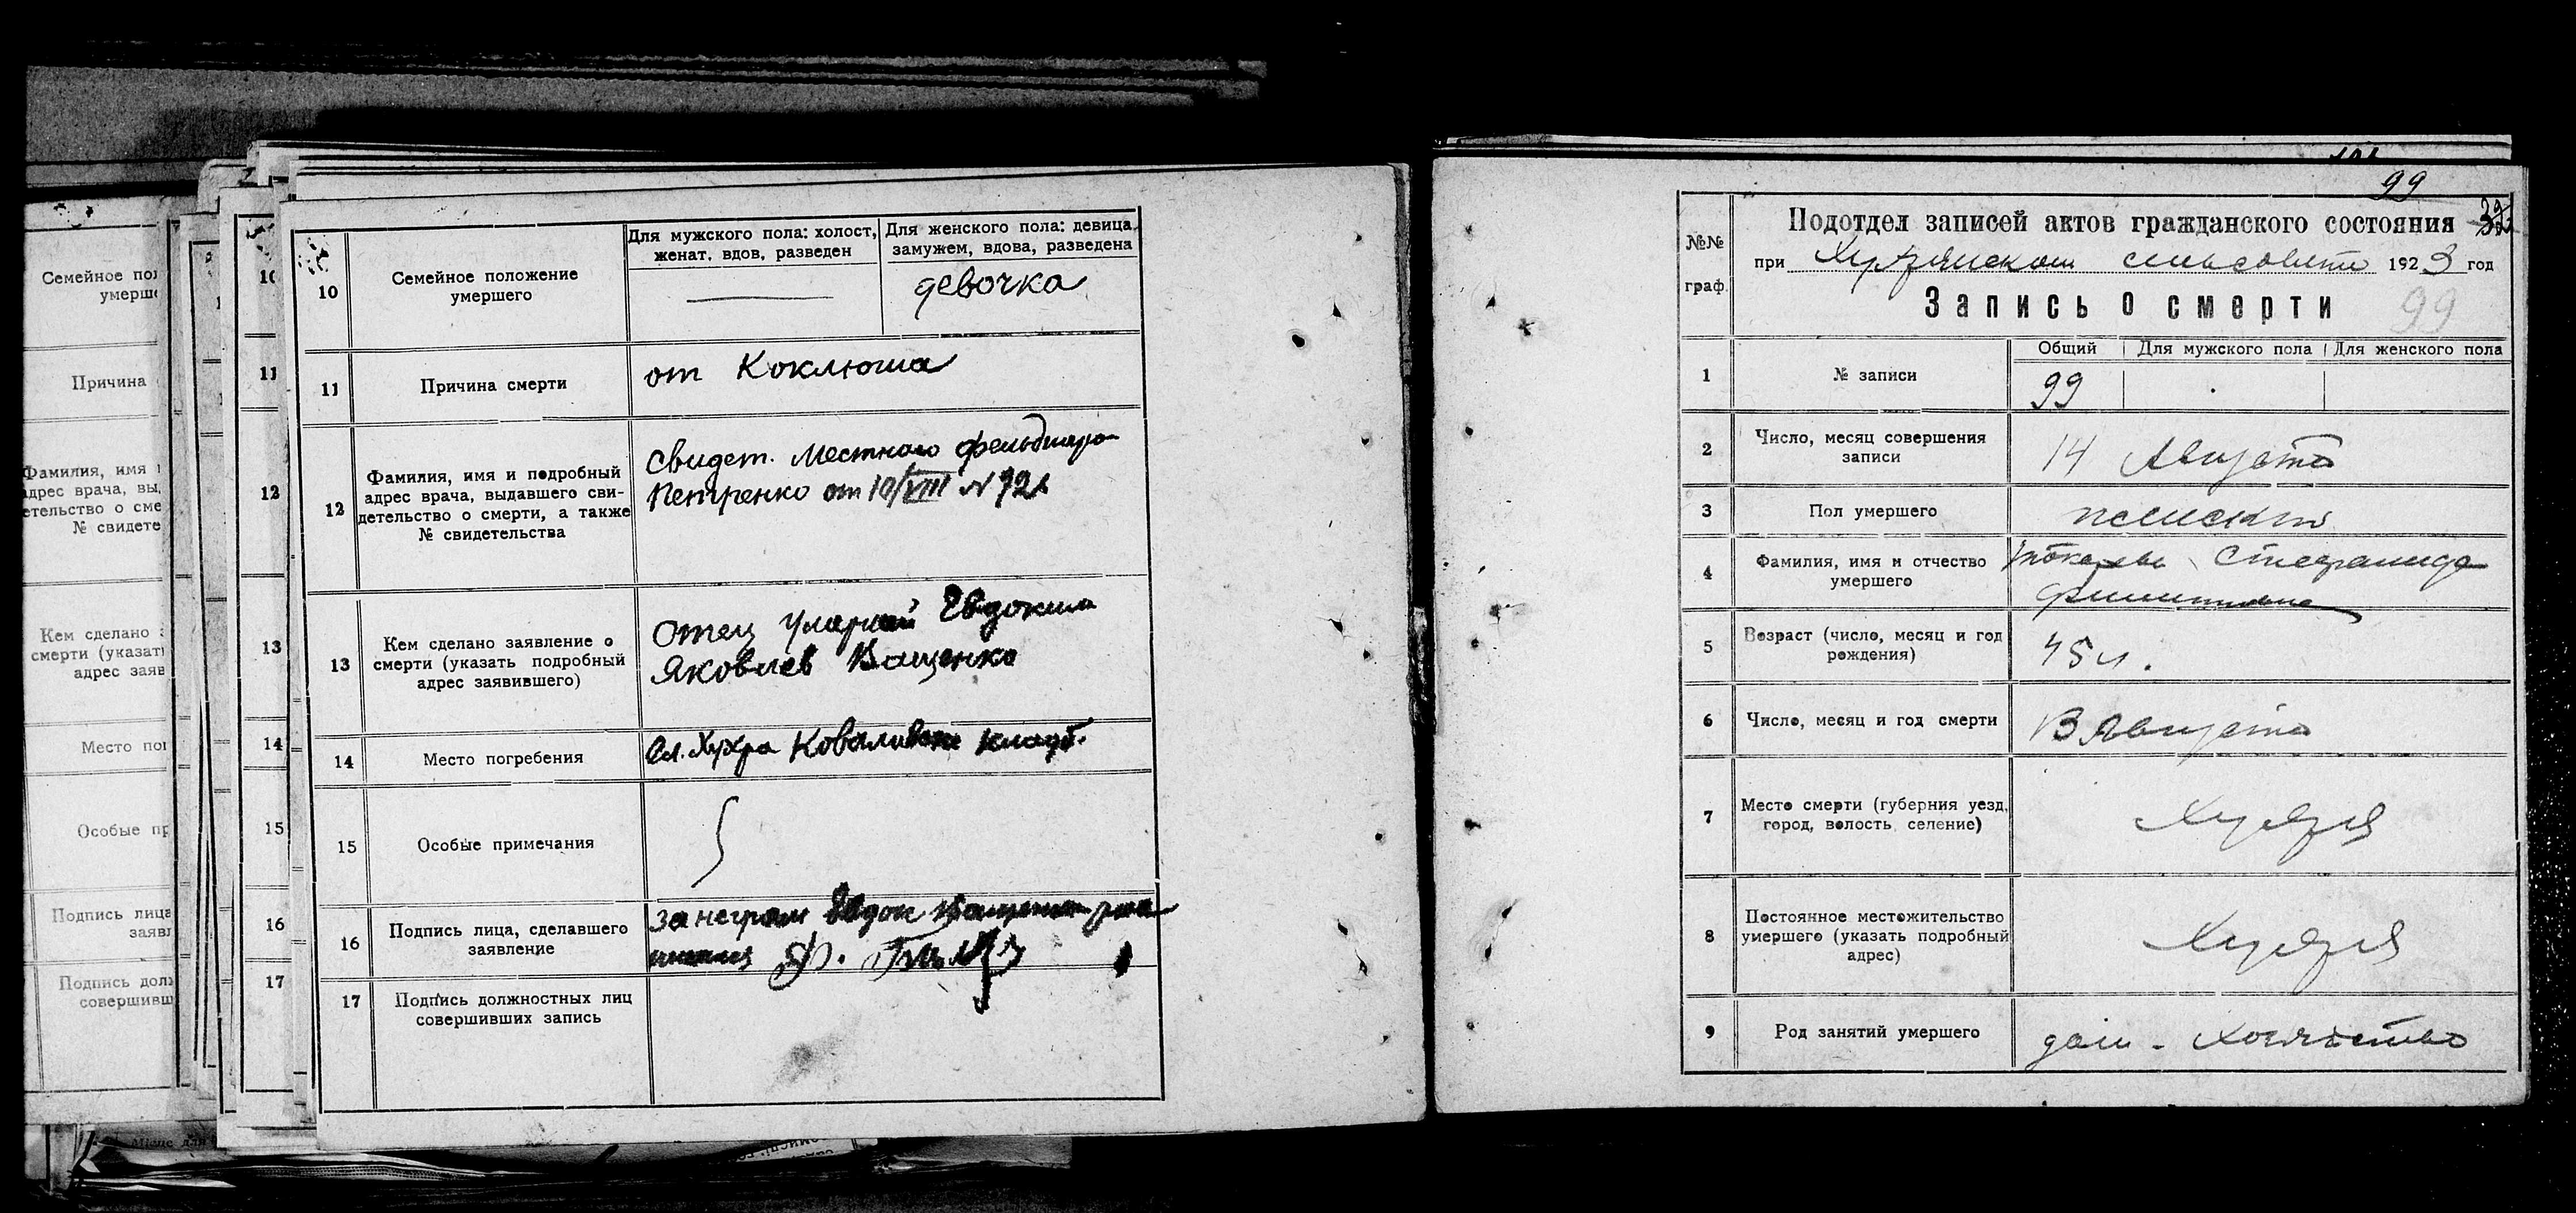 Семейное пол
умерше
Причина
Фамилия, имя и
адрес врача, вы,
етельство о сме
№ свидете
Кем сделано з
смерти (указать
адрес заяв
Место пог
Особые пр
Подпись лица
заявл
Подпись долж
совершивш
10
11
12
13
14
15
16
17
10
Семейное положение
умершего
Для мужского пола: холост,
женат, вдов, разведен
Для женского пола: девица,
замужем, вдова, разведена
девочка
11
Причина смерти
от Коклюша
12
Фамилия, имя и подробный
адрес врача, выдавшего сви-
детельство о смерти, а также
№ свидетельства
Свидет. Местного фельдшера
Петренко от 10/VIII №
13
Кем сделано заявление о
смерти (указать подробный
адрес заявившего)
Отец умершей Евдоким
Яковлев Ващенко
14
Место погребения
Сл. Хухра Ковалевское кладб.
15
Особые примечания
16
Подпись лица, сделавшего
заявление
за неграм Евдок Ващенко
Ф.
17
Подпись должностных лиц
совершивших запись
99
№№
граф.
Подотдел записей актов гражданского состояния
при Хухрянском сельсовете 1923 год
Запись о смерти 99
Общий
Для мужского пола
Для женского пола
1
№ записи
99
2
Число, месяц совершения
записи
14 Августа
3
Пол умершего
женский
4
Фамилия, имя и отчество
умершего
Стефанида
5
Возраст (число, месяц и год
рождения)
45 л.
6
Число, месяц и год смерти
13 Августа
7
Место смерти (губерния уезд,
город, волость, селение)
Хухря
8
Постоянное местожительство
умершего (указать подробный
адрес)
Хухря
9
Род занятий умершего
дом. хозяйство